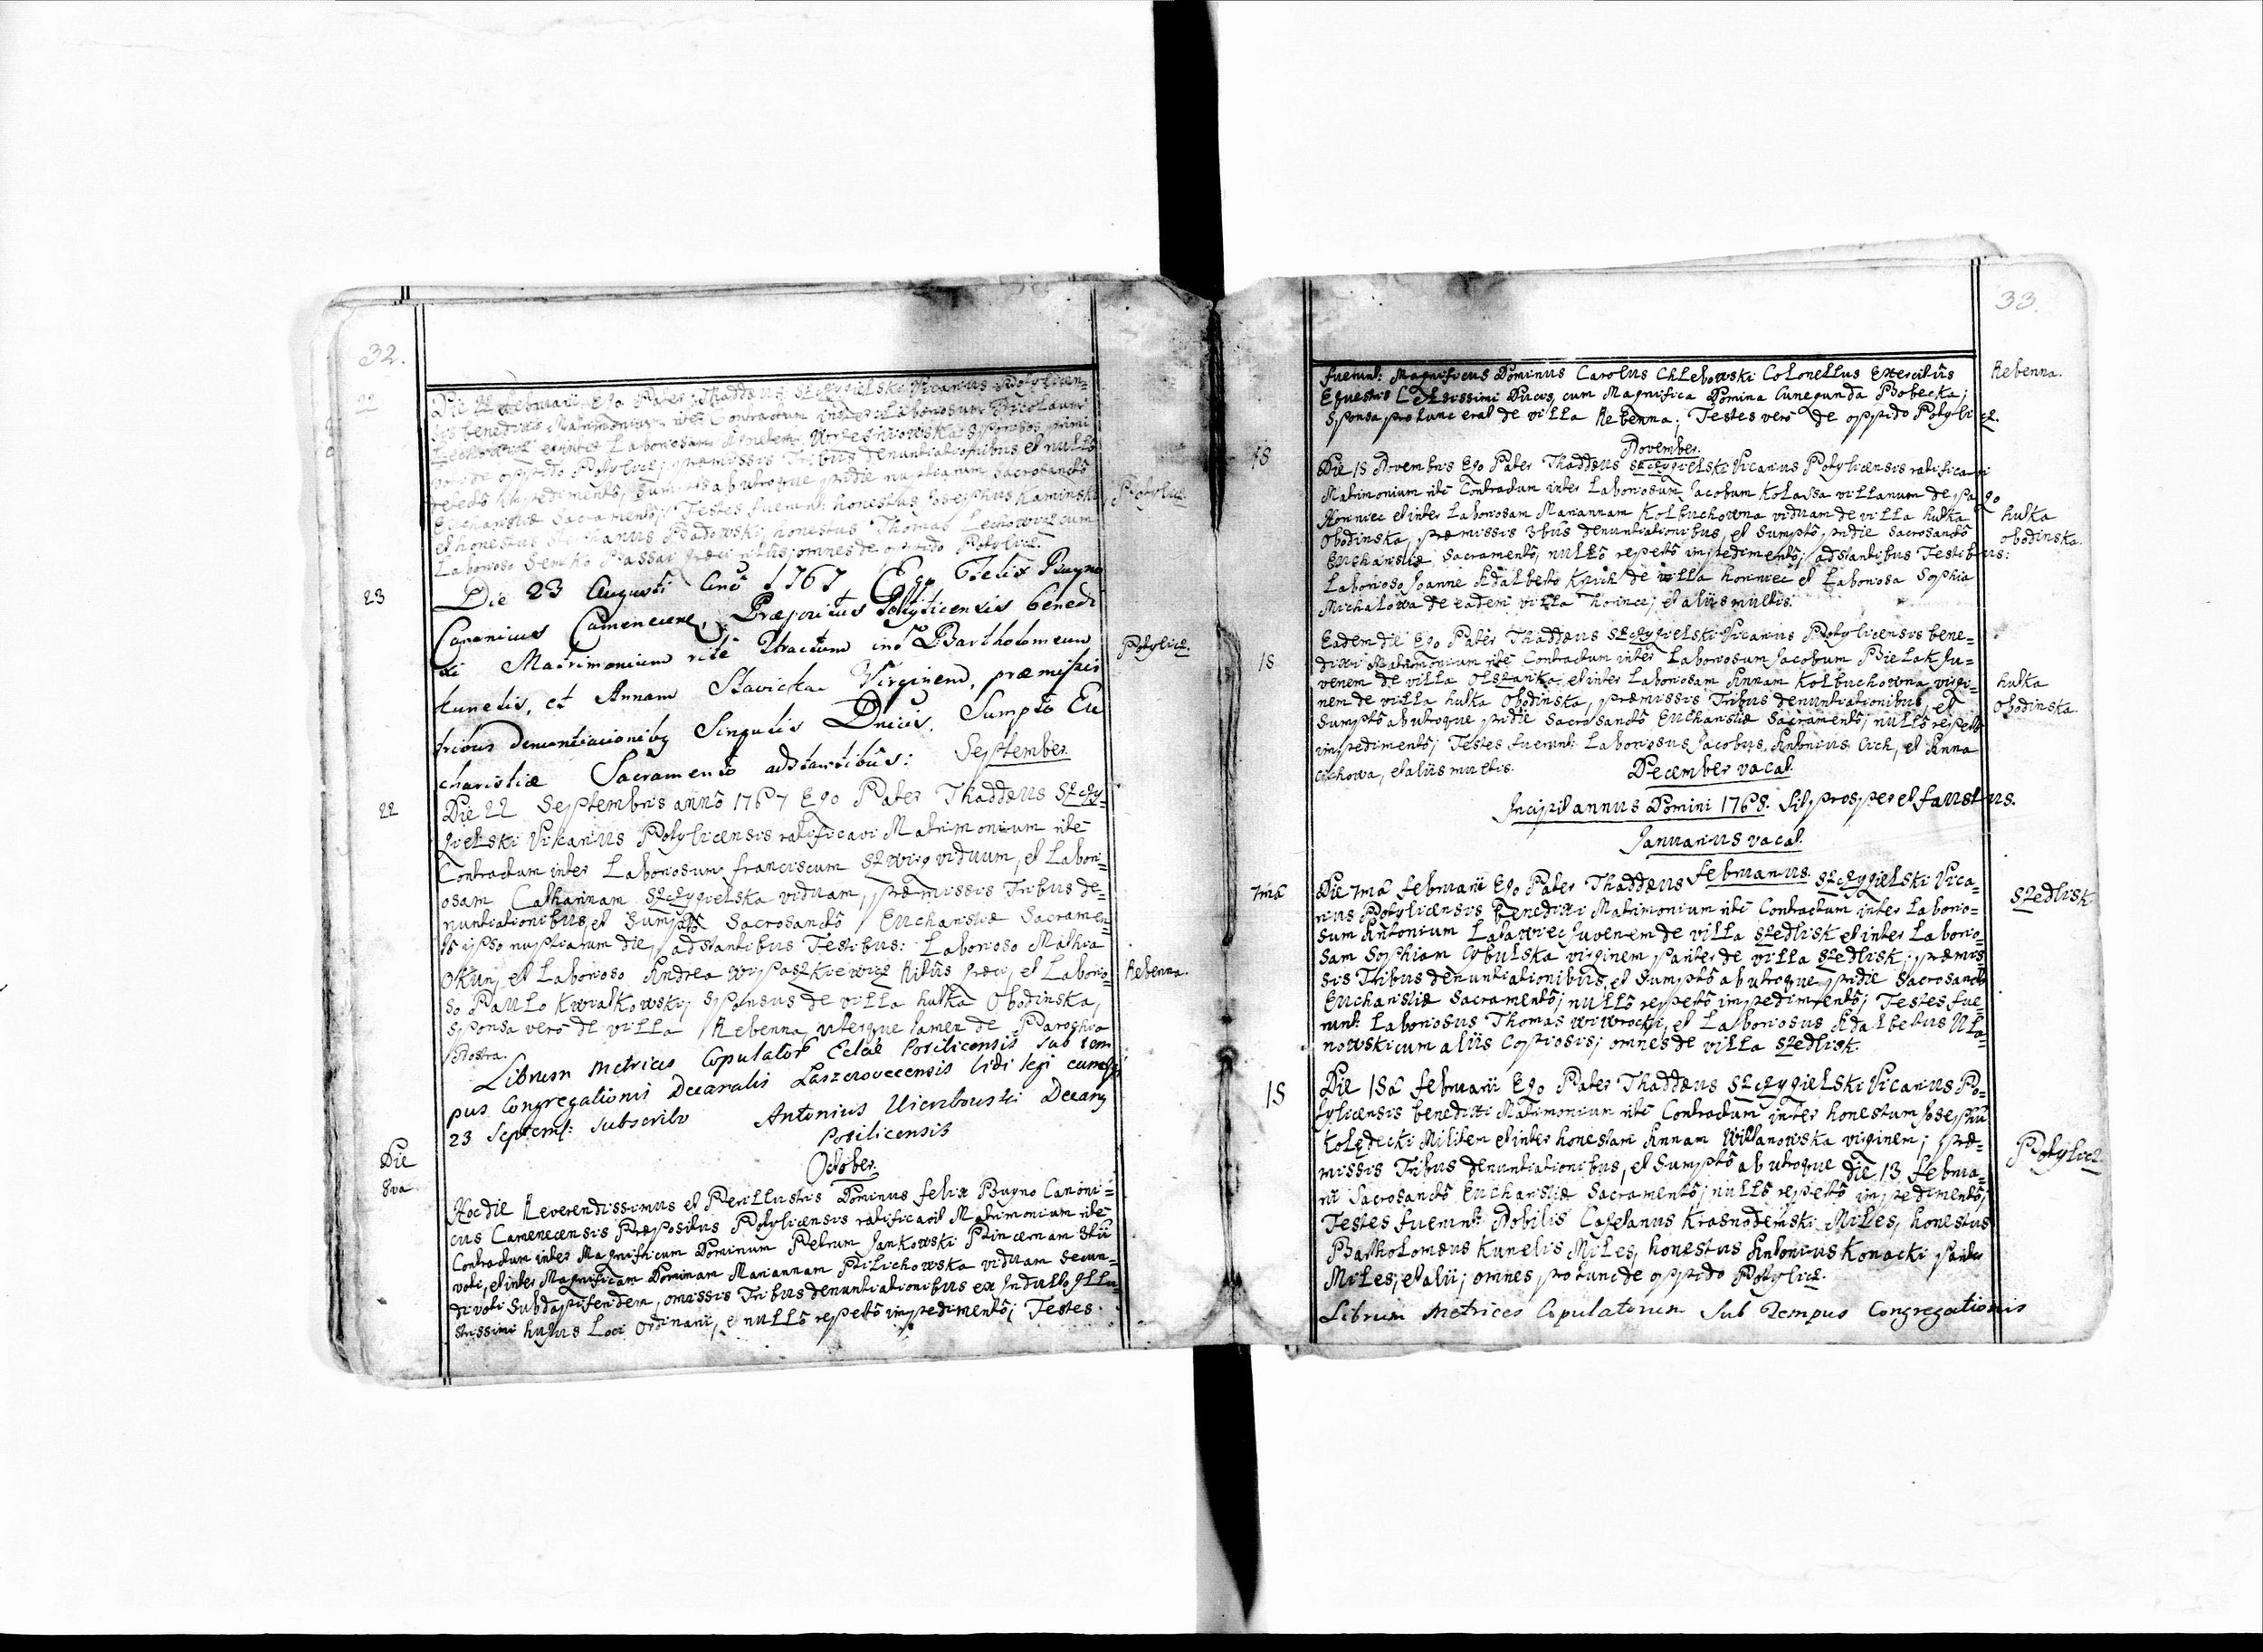 32.
22
Die 22 Februarii Ego Pater Thaddæus Szczygielski Vicarius Potylicen=
sis benedixi Matrimonium ritè Contractum inter Laboriosum Nicolaum
Lechowicz et inter Laboriosam sponsos primi
voti de oppido Potylicz, præmissis Tribus denuntiationibus et nullô
detectô impedimentô, sumptô ab utroque pridie nuptiarum Sacrosanctô
Eucharistiæ Sacramentô; Testes fuerunt: honestus Josephus Kaminski,
et honestus Stephanus Badowski, honestus Thomas Lechowicz cum
Laborioso Semko Bassar Græci ritûs, omnes de oppido Potylicz.
Potylicz
23
Die 23 Augusti Anô 1767 Ego Felix Bugno
Canonicus Camenecen, Præpositus Potyticensis benedi
xi Matrimonium ritè Contractum int Bartholomeum
Kunelis, et Annam Stavicka Virginem, præmissis
tribus denuntiacionibg Singulis Dnicis, Sumptô Eu
charistiæ Sacramento adstantibûs: September.
Potylicz.
22
Die 22 Septembris annô 1767 Ego Pater Thaddæus Szczy=
gielski Vicarius Potylicensis ratificavi Matrimonium ritè
Contractum inter Laboriosum franciscum Szwirg viduum, et Labori=
osam Catharinam Szczygielska viduam, præmissis Tribus de=
nuntiationibus, et Sumptô Sacrosanctô Eucharistiæ Sacramen=
tô ipso nuptiarum die, adstantibus Testibus: Laborioso Mathia
Okuń, et Laborioso Andrea Wypaszkiewicz Ritûs Græci, et Laborio=
so Paulo Kwiatkowski; Sponsus de villa hutka Obedinska,
Sponsa verò de villa Rebenna, uterque tamen de Parochia
Nostra.
Rebenna.
Librum Metrices Copulator Eclæ Potilicensis sub tem
pus Congregationis Decanalis Laszczovecensis vidi legi eumqz
23 Septemb: subscribo Antonius Wierzbowski Decang
Potilicensis
October.
Die
8va
Hoc die Reverendissimus et Perillustris Dominus felix Bugno Canoni=
cus Camenecensis Præpositus Potylicensis ratificavit Matrimonium ritè
Contractum inter Magnificum Dominum Petrum Jankowski Pincernam
voti, et inter Magnificam Dominam Mariannam Pilichowska viduam Secun=
di voti Subdapiferidem, omissis Tribus denuntiationibus ex Indulto Illu=
strissimi hujus Loci Ordinarii, et nullô repertô impedimentô; Testes
33.
fuerunt: Magnificus Dominus Carolus Chlebowski Colonellus Exercitûs
Equestris Celsissimi Ducis, cum Magnifica Domina Cunegunda Bobecka;
Sponsa pro tunc erat de villa Rebenna; Testes verò de oppido Potylicz.
Rebenna.
November.
18
Die 18 Novembris Ego Pater Thaddæus Szczygielski Vicarius Potylicensis ratificavi
Matrimonium ritè Contractum inter Laboriosum Jacobum Kolassa villanum de pago
Horiniec et inter Laboriosam Mariannam Kolbuchowna viduam de villa hutka
Obodinska, præmissis 3bus denuntiationibus, et Sumptô pridie Sacrosanctô
Eucharistiæ Sacramentô, nullô repertô impedimentô; adstantibus Testibus:
Laborioso Joanne Adalberto Kruck de villa horiniec et Laboriosa Sophia
Michałowa de eadem villa horinec; et aliis multis.
hutka
obodinska.
18
Eadem die Ego Pater Thaddæus Szczygielski Vicarius Potylicensis bene=
dixi Matrimonium ritè Contractum inter Laboriosum Jacobum Bielak Ju=
venem de villa Olszanka, et inter Laboriosam Annam Kolbuchowna virgi=
nem de villa hutka Obodinska, præmissis Tribus denuntiationibus, et
Sumptô ab utroque pridie Sacrosanctô Eucharistiæ Sacramentô; nullô repertô
impedimentô; Testes fuerunt: Laboriosus Jacobus, Antonius Cich, et Anna
Cichowa, et aliis multis.
hutka
Obodinska.
December vacat.
Incipit annus Domini 1768. Sit prosper et faustus.
Januarius vacat.
februarius.
7mâ
Die 7mâ februarii Ego Pater Thaddæus Szczygielski Vica=
rius Potylicensis Benedixi Matrimonium ritè Contractum inter Laborio=
sum Antonium Latawiec Juvenem de villa Szedlisk et inter Laborio=
sam Sophiam Cybulska virginem pariter de villa Szedlisk; præmis=
sis Tribus denuntiationibus, et Sumptô ab utroque pridie Sacrosanctô
Eucharistiæ Sacramentô; nullô repertô impedimentô; Testes fue=
runt: Laboriosus Thomas Wiwrocki, et Laboriosus Adalbertus Ula=
nowski cum aliis Copiosis; omnes de villa Szedlisk.
Szedlisk
15
Die 15â februarii Ego Pater Thaddæus Szczygielski Vicarius Po=
tylicensis benedixi Matrimonium ritè Contractum inter honestum Josephū
Kołędecki Militem et inter honestam Annam Wilanowska virginem; præ=
missis Tribus denuntiationibus, et Sumptô ab utroque die 13 februa=
rii Sacrosanctô Eucharistiæ Sacramentô; nullô repertô impedimentô;
Testes fuerunt: Nobilis Cajetanus Krasnodemski Miles, honestus
Bartholomæus Kunelis Miles, honestus Antonius Konacki pariter
Miles; et alii; omnes pro tunc de oppido Potylicz.
Potylicz.
Librum Metrices Copulatorum Sub Tempus Congregationis